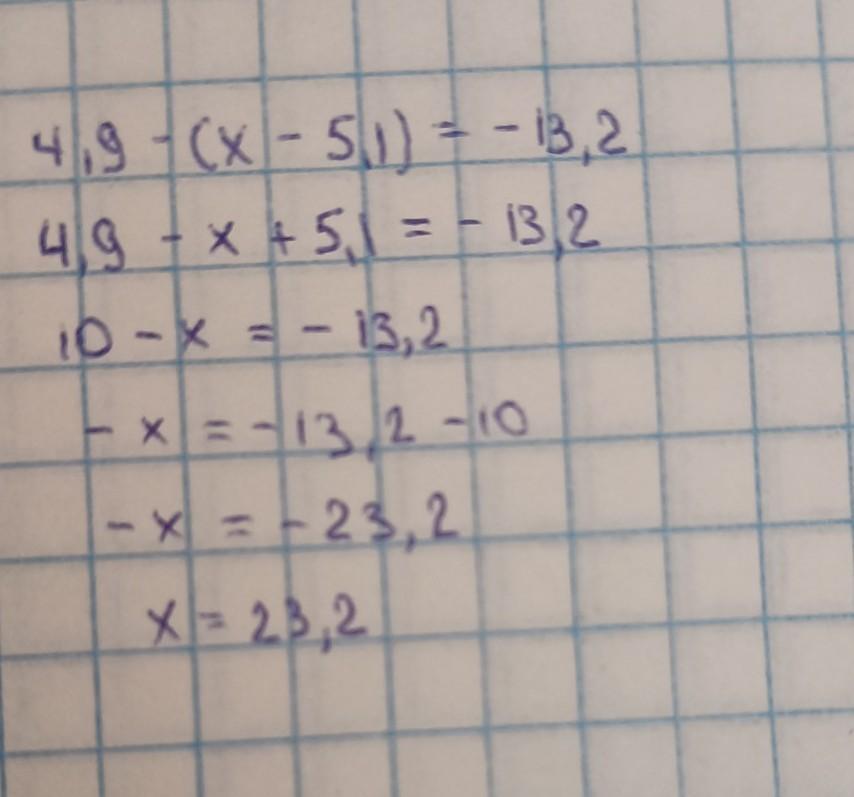 4,9 - (x - 5,1) = - 13,2
4,9 - x + 5,1 = - 13,2
10 - x = - 13,2
- x = - 13,2 - 10
- x = - 23,2
x = 23,2